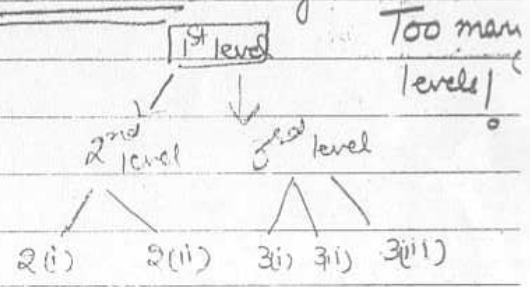 1st level
Too man
levels!
2nd level
3rd level
2(i) 2(ii) 3(i) 3(ii) 3(iii)